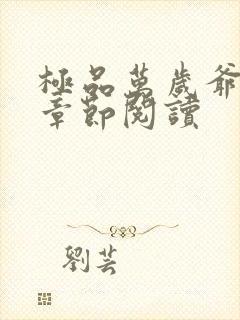 極品萬歲爺
章節閱讀
劉芸